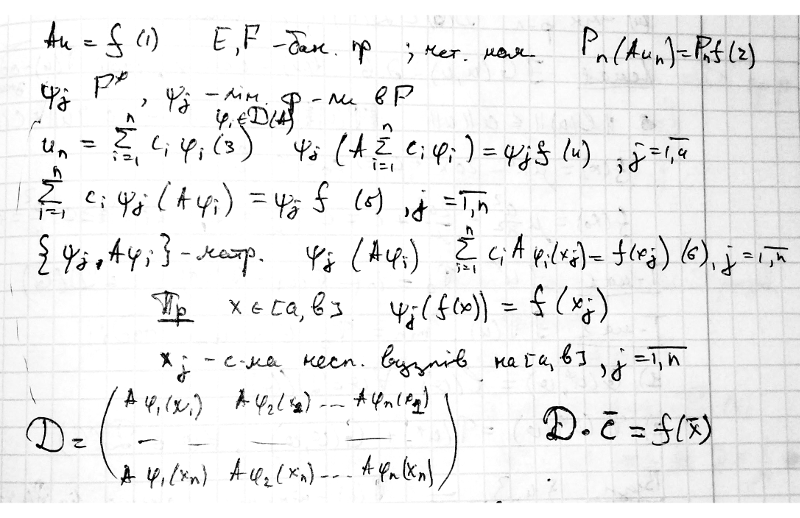 Au = f (1) E, F - бан. пр ; мет. ном. P_n(Au_n) = P_n f (2)
ψ_j F*, ψ_j - лін. ф-ли в F
φ_i ∈ D(A)
u_n = Σ_{i=1}^{n} c_i φ_i (3) ψ_j (A Σ_{i=1}^{n} c_i φ_i) = ψ_j f (4), j = \overline{1,n}
Σ_{i=1}^{n} c_i ψ_j (Aφ_i) = ψ_j f (5), j = \overline{1,n}
{ψ_j, Aφ_i} - матр. ψ_j (Aφ_i) Σ_{i=1}^{n} c_i Aφ_i(x_j) = f(x_j) (6), j = \overline{1,n}
Пр x ∈ [a, в] ψ_j(f(x)) = f(x_j)
x_j - с-ма несп. вузлів на [a, в], j = \overline{1,n}
D = ( Aφ_1(x_1) Aφ_2(x_1) ... Aφ_n(x_1)
— — — —
Aφ_1(x_n) Aφ_2(x_n) ... Aφ_n(x_n) ) D · \bar{c} = f(\bar{x})